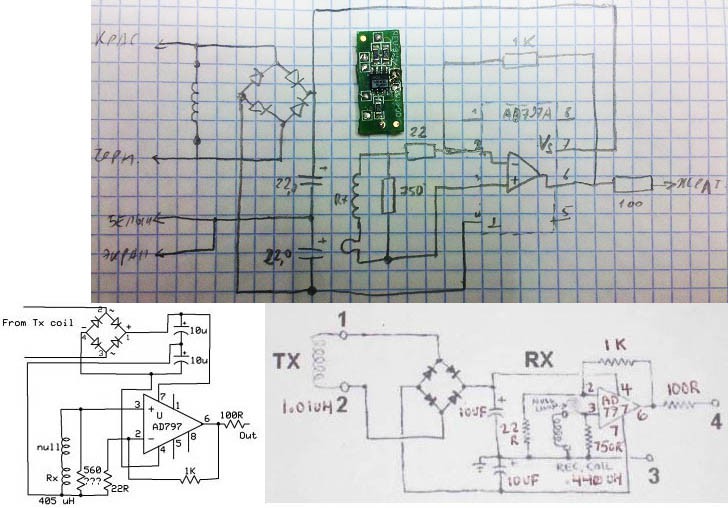 КРАС
ЧЕРН.
БЕЛЫЙ
ЭКРАН
22,0
22,0
Rx
750
22
1K
AD797A
1
8
2
Vs 7
3
6
4
5
100
From Tx coil
2
~
1
+
3
~
4
-
10u
10u
3
7
1
U
AD797
6
100R
Out
2
4
5
8
1K
null
Rx
560
???
22R
405 uH
TX
1
2
1.01UH
RX
10UF
10UF
22
R
NULL
LOOP
REC. COIL
.440 UH
750R
1K
2
3
4
AD
777
7
6
100R
4
3